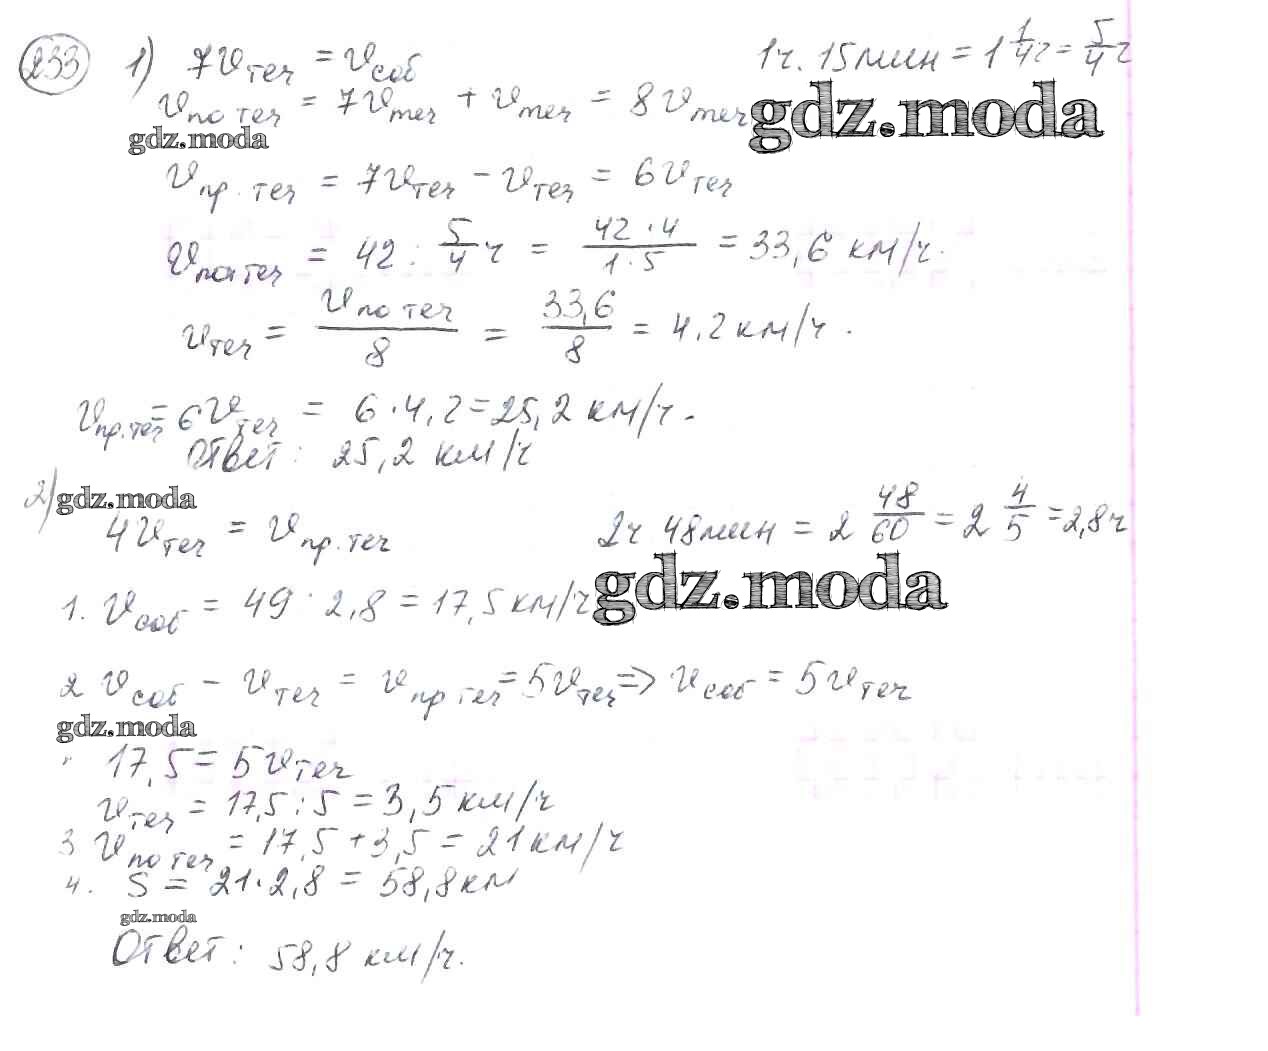 233 1) 7υтеч = υсоб 1ч. 15мин = 1 1/4 ч = 5/4 ч
υпо теч = 7υтеч + υтеч = 8υтеч
gdz.moda gdz.moda
υпр. теч = 7υтеч - υтеч = 6υтеч
υпо теч = 42 : 5/4 ч = 42 · 4 / 1 · 5 = 33,6 км/ч.
υтеч = υпо теч / 8 = 33,6 / 8 = 4,2 км/ч.
υпр.теч = 6υтеч = 6 · 4,2 = 25,2 км/ч.
Ответ: 25,2 км/ч
2) gdz.moda
4υтеч = υпр.теч 2ч 48мин = 2 48/60 = 2 4/5 = 2,8ч
1. υсоб = 49 : 2,8 = 17,5 км/ч gdz.moda
2 υсоб - υтеч = υпр теч = 5υтеч => υсоб = 5υтеч
gdz.moda
17,5 = 5υтеч
υтеч = 17,5 : 5 = 3,5 км/ч
3 υпо теч = 17,5 + 3,5 = 21 км/ч
4. S = 21 · 2,8 = 58,8 км
gdz.moda
Ответ: 58,8 км/ч.